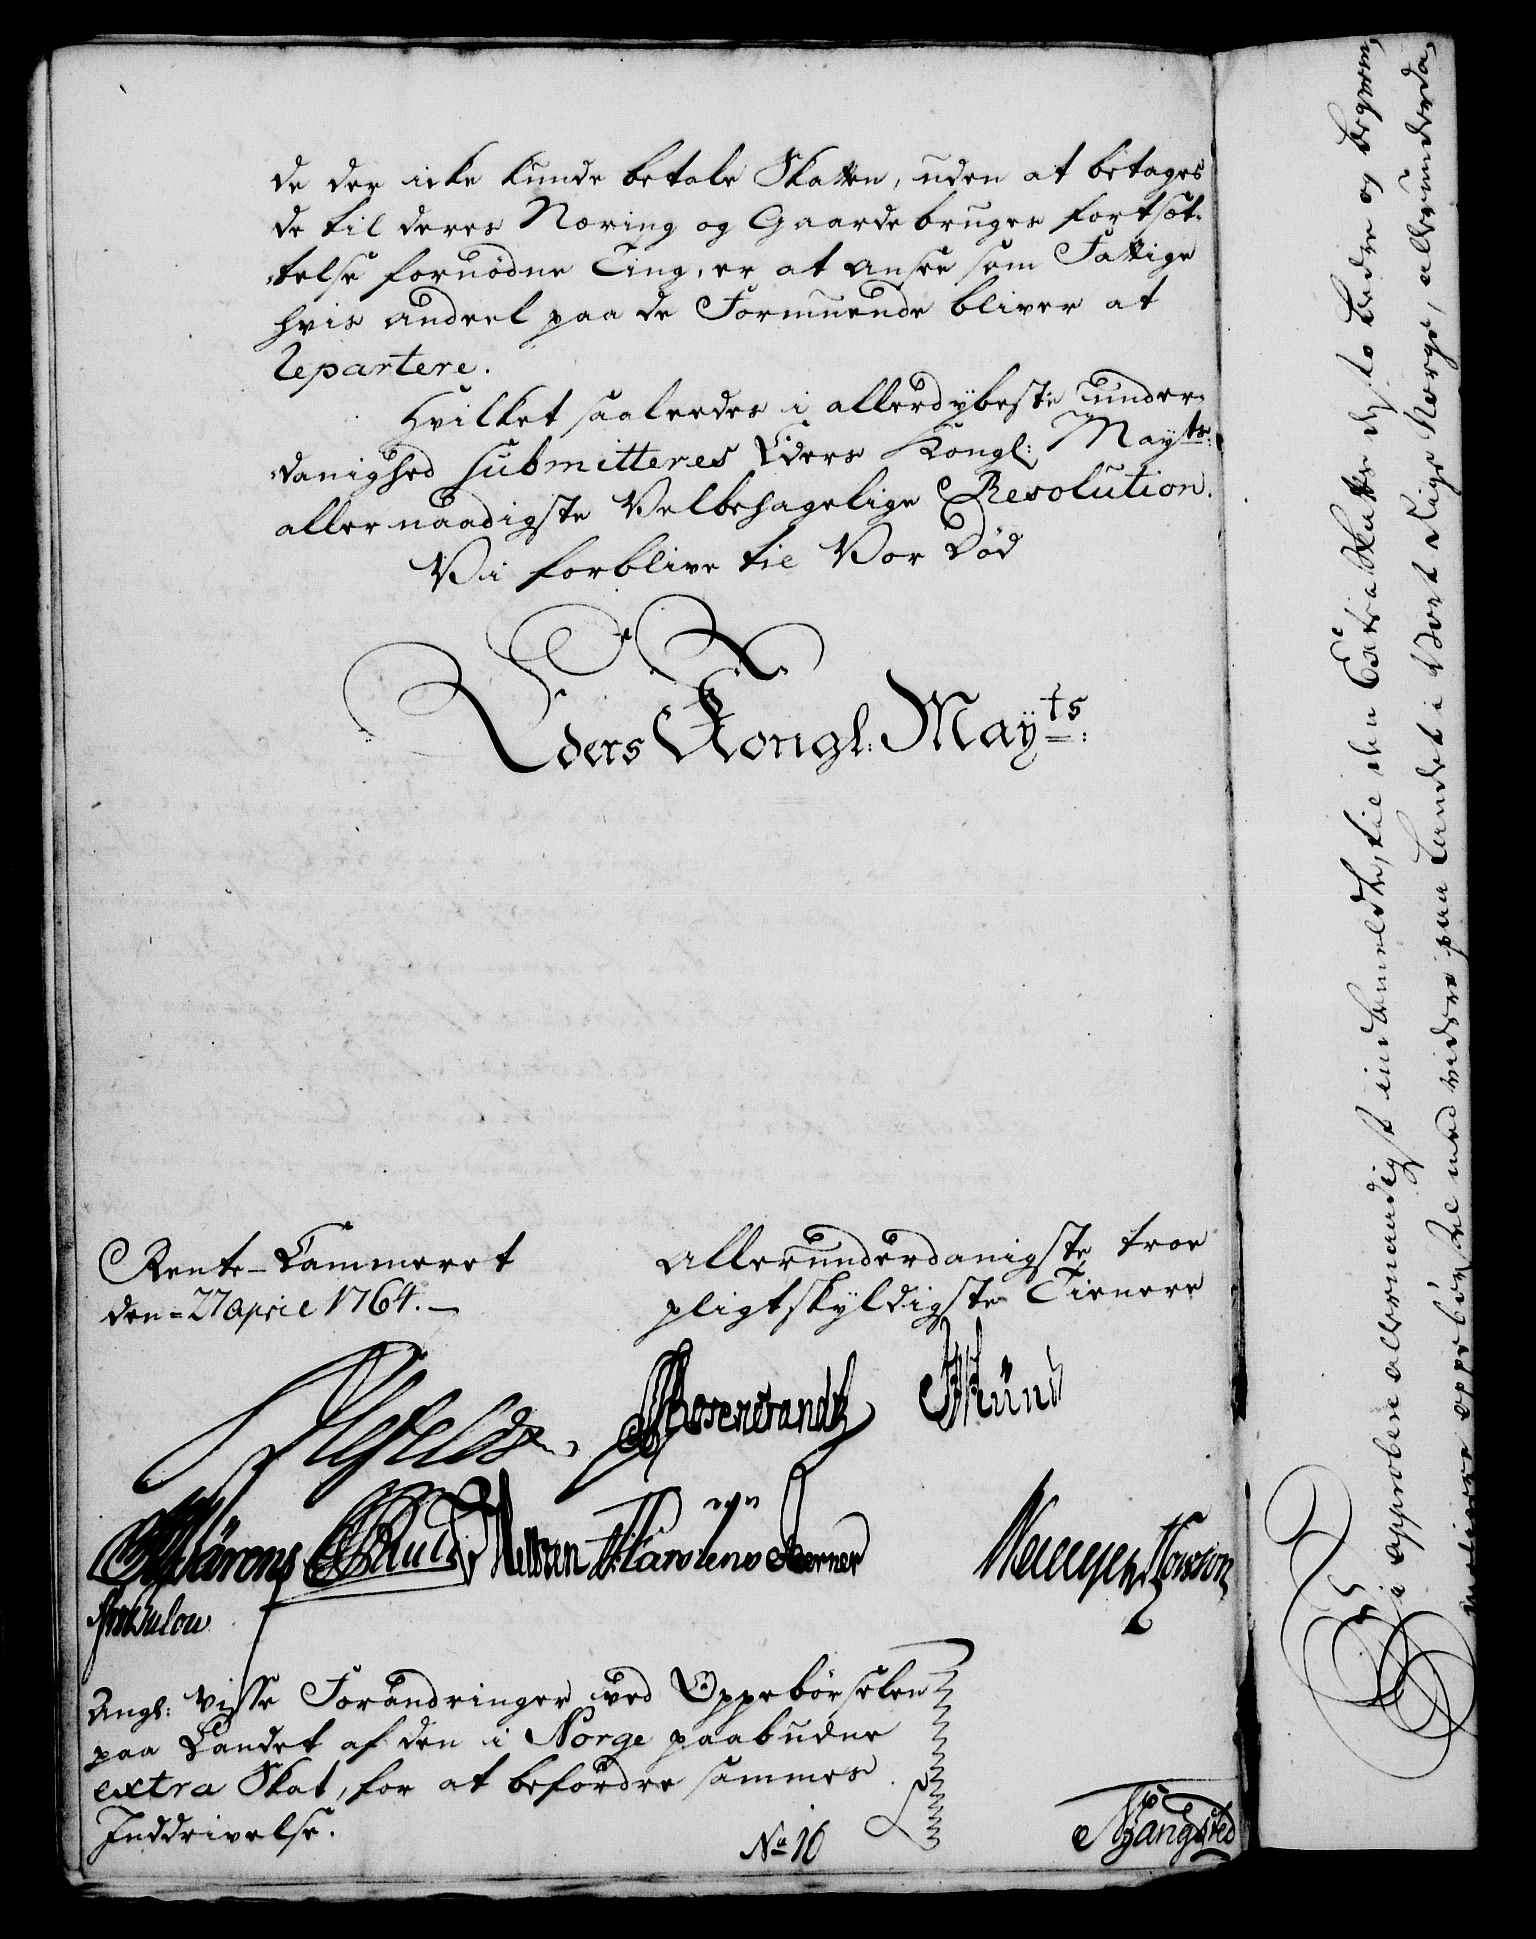 de der icke kunde betale Skatten, uden at betages
de til deres Næring og Gaardebruges fortsæt-
-telse fornødne Ting, er at ansee som Fattige
hvis andeel paa de Formuende bliver at
repartere.
Hvilket saaleedes i allerdybeste under-
-danighed submitteres Eders Kongl: Mayts:
allernaadigste Velbehagelige Resolution.
Vi forblive til Vor Død
Eders Kongl: Mayts:
Rente-Cammeret
den = 27 April 1764. —
Allerunderdanigste troe
pligtskyldigste Tienere
Rosencrandtz
Karstens Berner
Angl: visse Forandringer ved Oppebørselen
paa Landet af den i Norge paabudne
extra Skat, for at befordre sammes
Inddrivelse.
No 16
Bangsted
Vi approbere allernaadigst indbemeldte, til den Extraskatts desto bedre og beqvem-
-meligere oppebørsel med videre paa Landet i Vort Rige Norge, allerunderda-